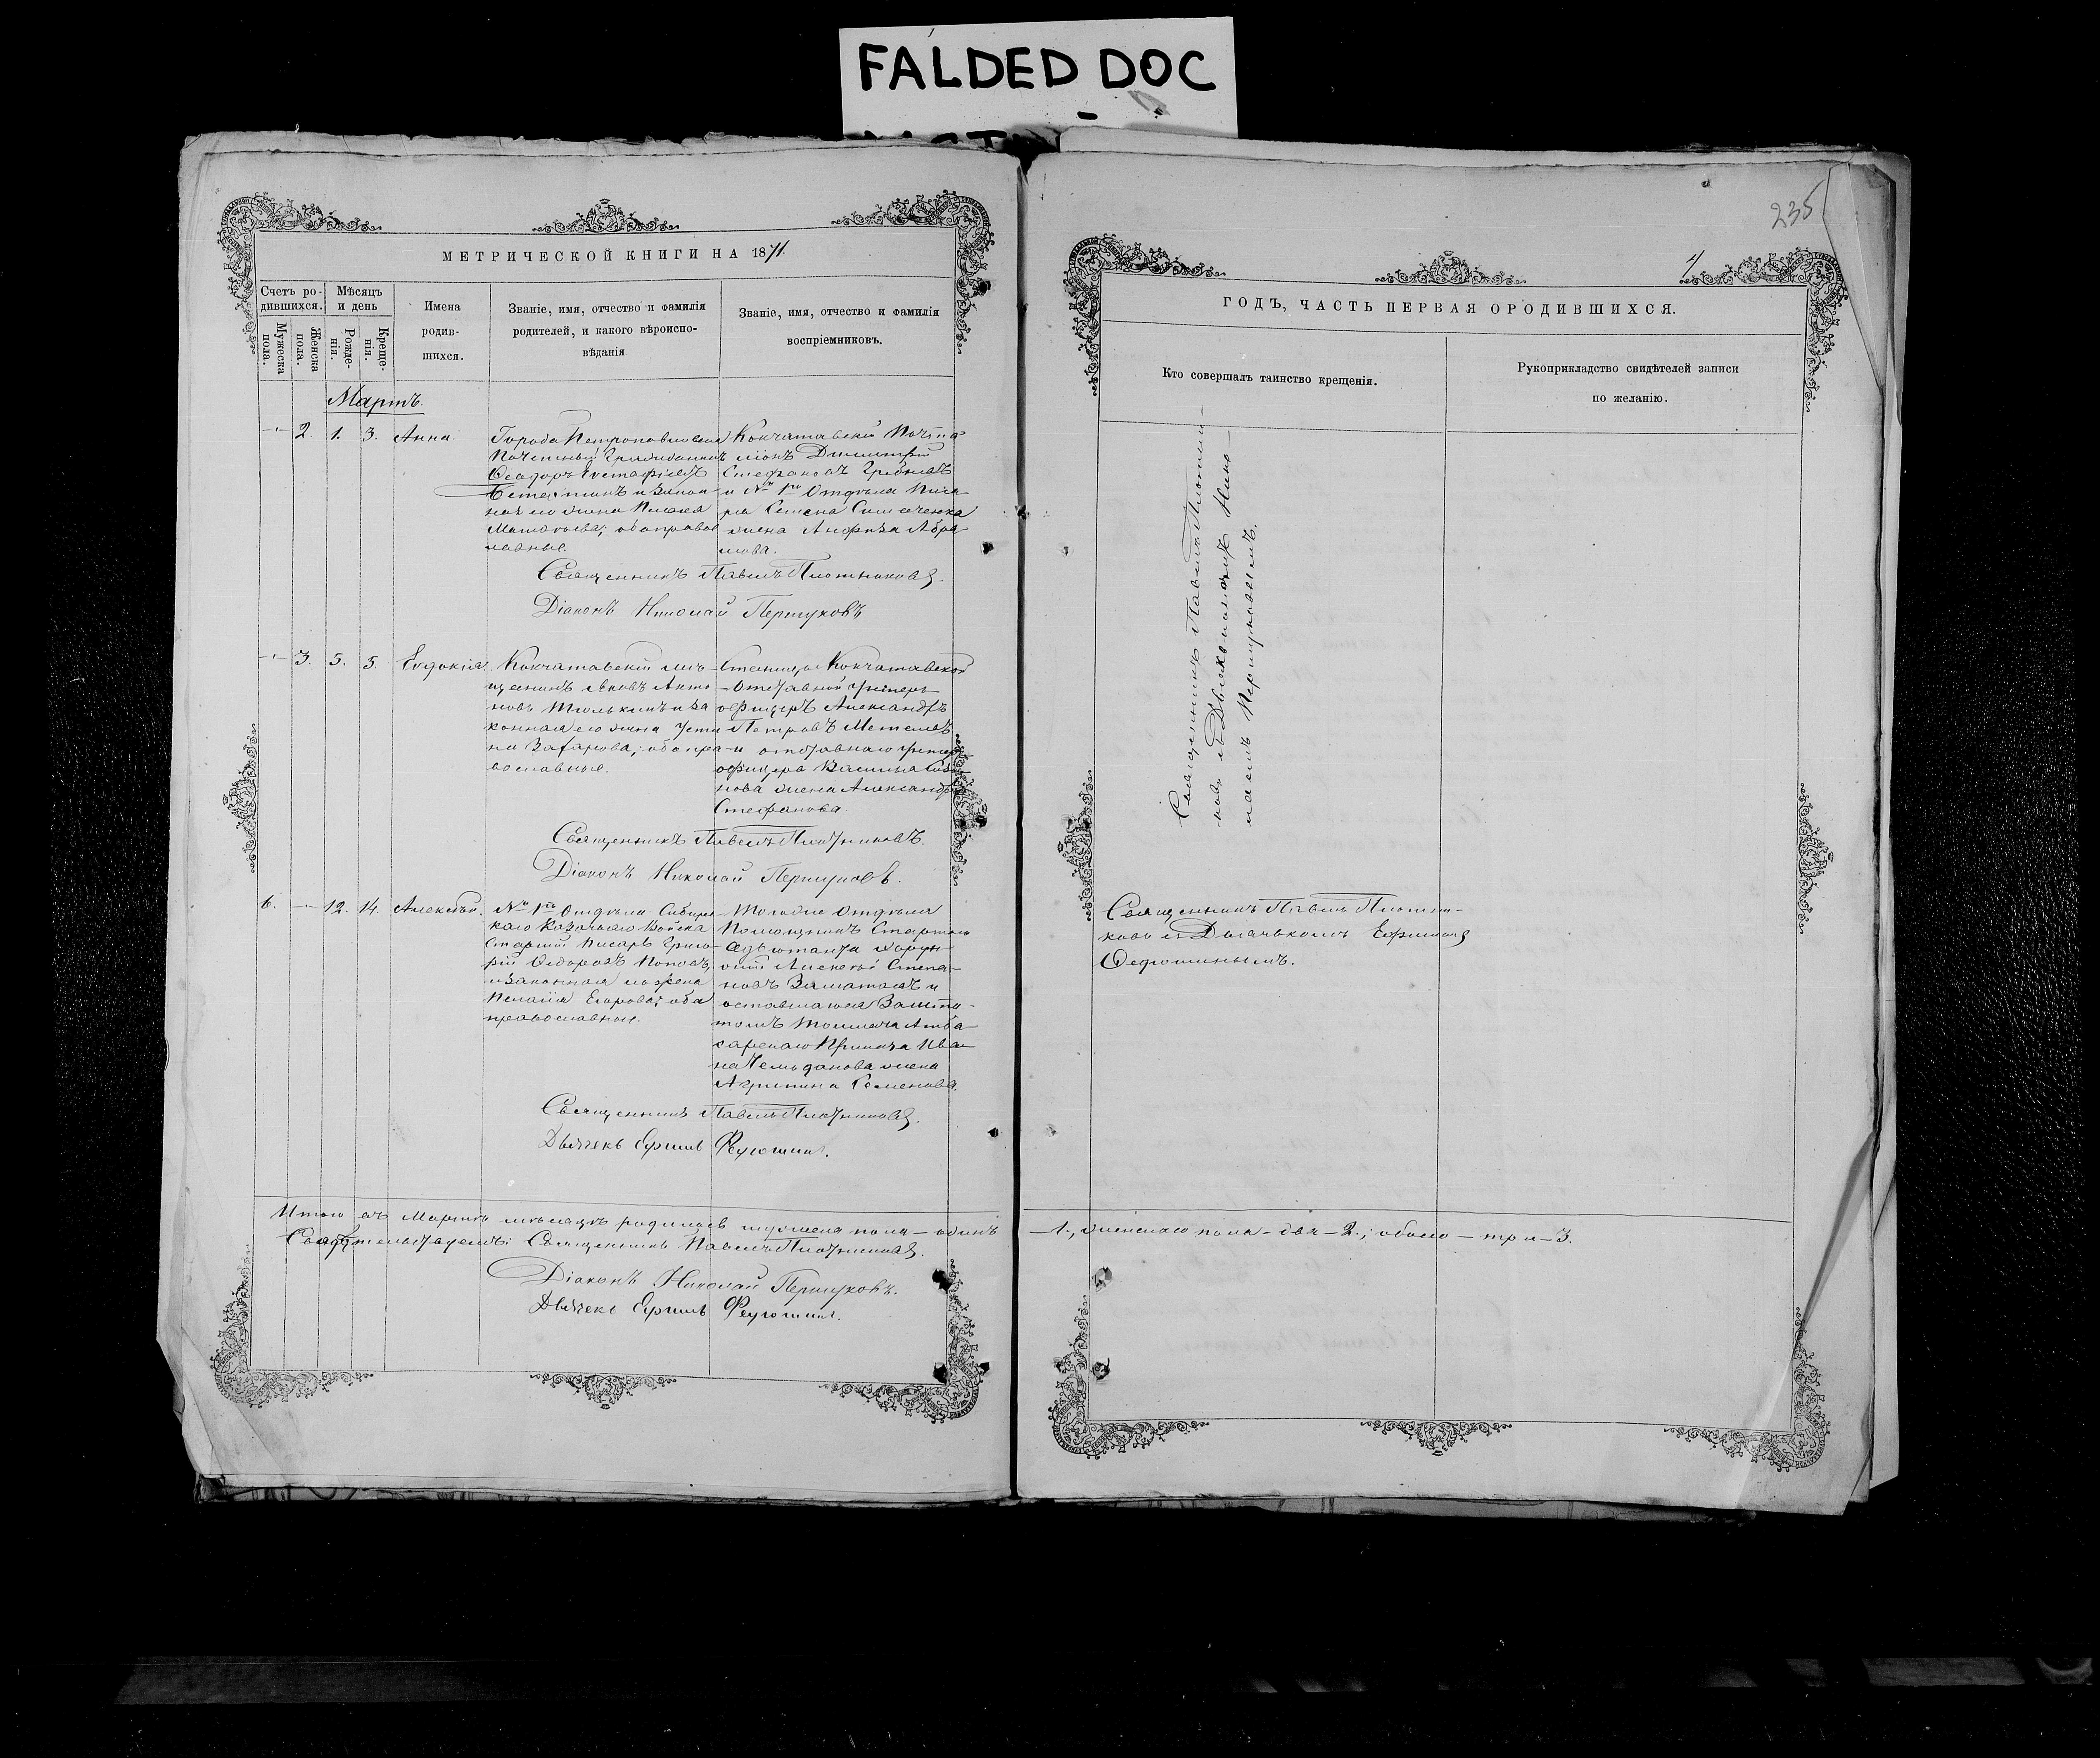 FALDED DOC
235
МЕТРИЧЕСКОЙ КНИГИ НА 1871.
Счетъ ро-
дившихся.
Мужеска
пола.
Женска
пола.
Мѣсяцъ
и день
Рожде-
нія.
Креще-
нія.
Имена
родив-
шихся.
Званіе, имя, отчество и фамилія
родителей, и какого вѣроиспо-
вѣданія
Званіе, имя, отчество и фамилія
воспріемниковъ.
Мартъ.
2. 1. 3. Анна.
Города Петропавловска
Почетный Гражданинъ
Феодоръ Евстафіевъ
и закон-
ная его жена
обаправос
лавные.
Кокчатавскій
Димитрій
Стефановъ
и № 1го Отдѣла Писа-
ря Семена
жена Анфиза Абра-
мова.
Священникъ Павелъ Плотниковъ.
Діаконъ Николай Першуковъ
3. 5. 5. Евдокія
Кокчатавскій мѣ-
щанинъ Яковъ Анто
новъ Тюлькинъ и за
конная его жена Усти
на Захарова; оба пра
вославные.
Станицы Кокчатавской
отставной Унтеръ-
офицеръ Александръ
Петровъ
и отставнаго Унтеръ
офицера Василья
нова жена Александра
Стефанова.
Священникъ Павелъ Плотниковъ.
Діаконъ Николай Першуковъ.
6. 12. 14. Алексѣй.
№ 1го Отдѣла Сибирс
каго Казачьяго Войска
Старшій Писарь Григо
рій Федоровъ Поповъ,
и законная его жена
Пелагія Егорова; оба
православные.
Тогоже Отдѣла
Помощникъ Старшаго
Адъютанта хорун-
жій Алексѣй Степа-
новъ и
Атба-
сарскаго Приказа Ива-
на Чемоданова жена
Агрипина Семенова.
Священникъ Павелъ Плотниковъ.
Дьячекъ Ефимъ Федюшинъ.
Итого въ Мартѣ мѣсяцѣ родилось мужеска пола — одинъ
Свидѣтельствуемъ: Священникъ Павелъ Плотниковъ.
Діаконъ Николай Першуковъ.
Дьячекъ Ефимъ Федюшинъ.
ГОДЪ, ЧАСТЬ ПЕРВАЯ ОРОДИВШИХСЯ.
Кто совершалъ таинство крещенія.
Рукоприкладство свидѣтелей записи
по желанію.
Священникъ Павелъ Плотни-
ковъ съ Діакономъ Нико-
лаемъ Першуковымъ.
Священникъ Павелъ Плотни-
ковъ съ Дьячькомъ Ефимомъ
Федюшинымъ.
—1., женскаго пола — два — 2.; обоего — три — 3.